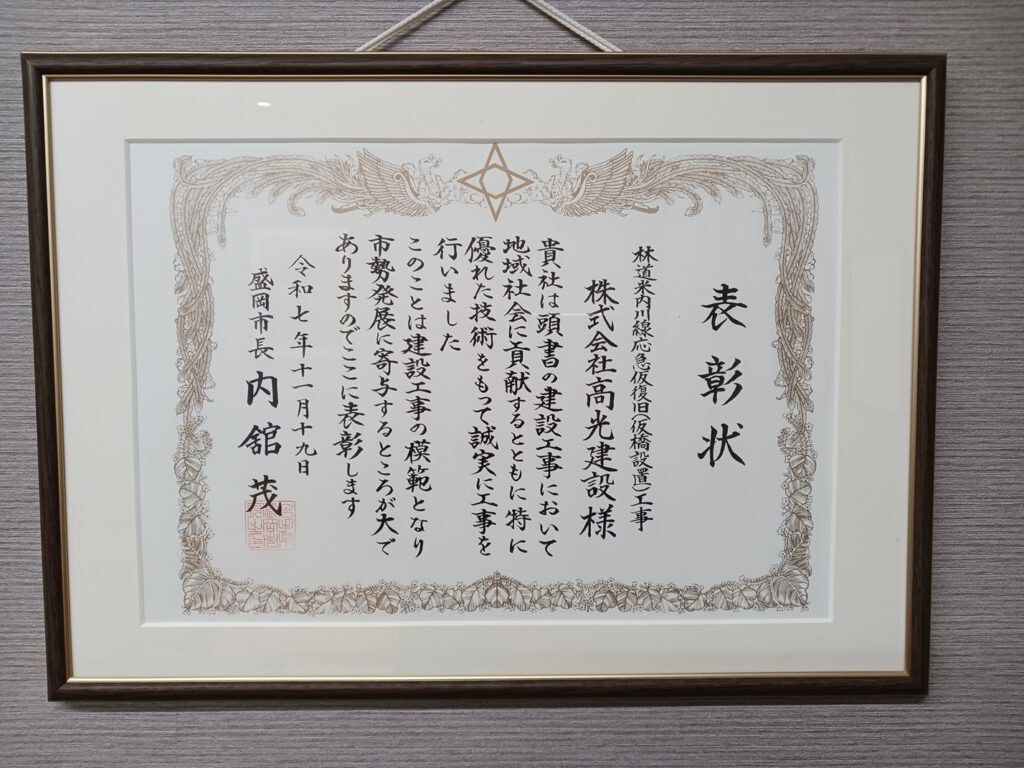 表彰状
林道米内川線応急仮復旧(仮橋設置)工事
株式会社高光建設様
貴社は頭書の建設工事において
地域社会に貢献するとともに特に
優れた技術をもって誠実に工事を
行いました
このことは建設工事の模範となり
市勢発展に寄与するところが大で
ありますのでここに表彰します
令和七年十一月十九日
盛岡市長 内舘茂